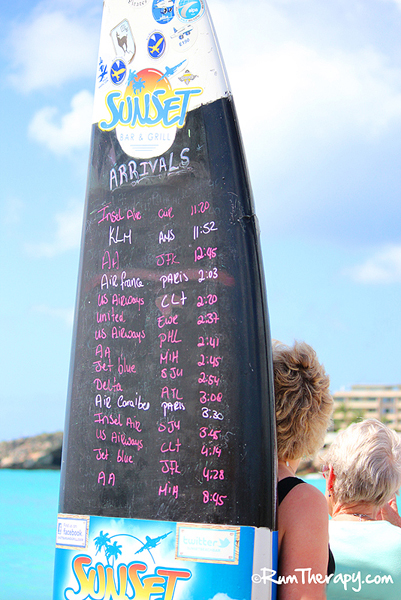 SUNSET
BAR & GRILL
ARRIVALS
Insel Air CUR 11:20
KLM AMS 11:52
AA JFK 12:45
Air france PARIS 2:03
US Airways CLT 2:20
United EWR 2:37
US Airways PHL 2:41
AA MIA 2:45
Jet blue SJU 2:54
Delta ATL 3:08
Air Caraibes PARIS 3:30
Insel Air SJU 3:55
US Airways CLT 4:14
Jet blue JFK 4:28
AA MIA 8:45
facebook
twitter
SUNSET
©RumTherapy.com